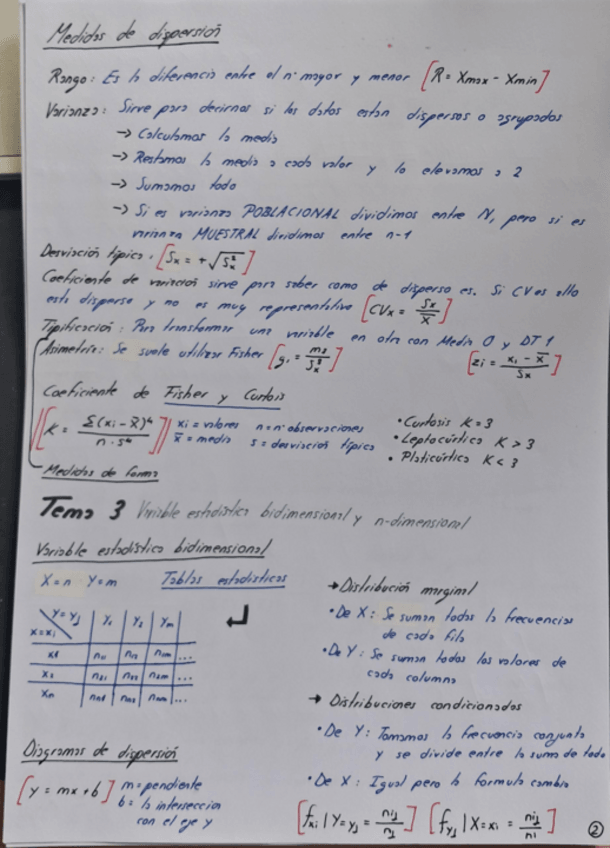 Medidas de dispersión
Rango: Es la diferencia entre el nº mayor y menor [R = Xmax - Xmin]
Varianza: Sirve para decirnos si los datos estan dispersos o agrupados
→ Calculamos la media
→ Restamos la media a cada valor y lo elevamos a 2
→ Sumamos todo
→ Si es varianza POBLACIONAL dividimos entre N, pero si es
varianza MUESTRAL dividimos entre n-1
Desviación típica: [Sx = +√S²x]
Coeficiente de variación sirve para saber como de disperso es. Si CV es alto
esta disperso y no es muy representativa [CVx = Sx/x̄]
Tipificación: Para transformar una variable en otra con Media 0 y DT 1
Asimetría: Se suele utilizar Fisher [g1 = m3/S³x] [zi = xi - x̄/Sx]
Coeficiente de Fisher y Curtosis
[K = Σ(xi - x̄)⁴/n · s⁴] xi = valores n = nº observaciones
x̄ = media s = desviación típica
• Curtosis K = 3
• Leptocúrtica K > 3
• Platicúrtica K < 3
Medidas de forma
Tema 3 Variable estadística bidimensional y n-dimensional
Variable estadística bidimensional
X = n Y = m Tablas estadísticas
Y = yj X = xi y1 y2 ym
x1 n11 n12 n1m ...
x2 n21 n22 n2m ...
xn nn1 nn2 nnm ...
Diagramas de dispersión
[y = mx + b] m = pendiente
b = la interseccion
con el eje y
→ Distribución marginal
• De X: Se suman todas la frecuencias
de cada fila
• De Y: Se suman todos los valores de
cada columna
→ Distribuciones condicionadas
• De Y: Tomamos la frecuencia conjunta
y se divide entre la suma de todo
• De X: Igual pero la formula cambia
[fxi | Y=yj = nij/nj] [fyj | X=xi = nij/ni]
2